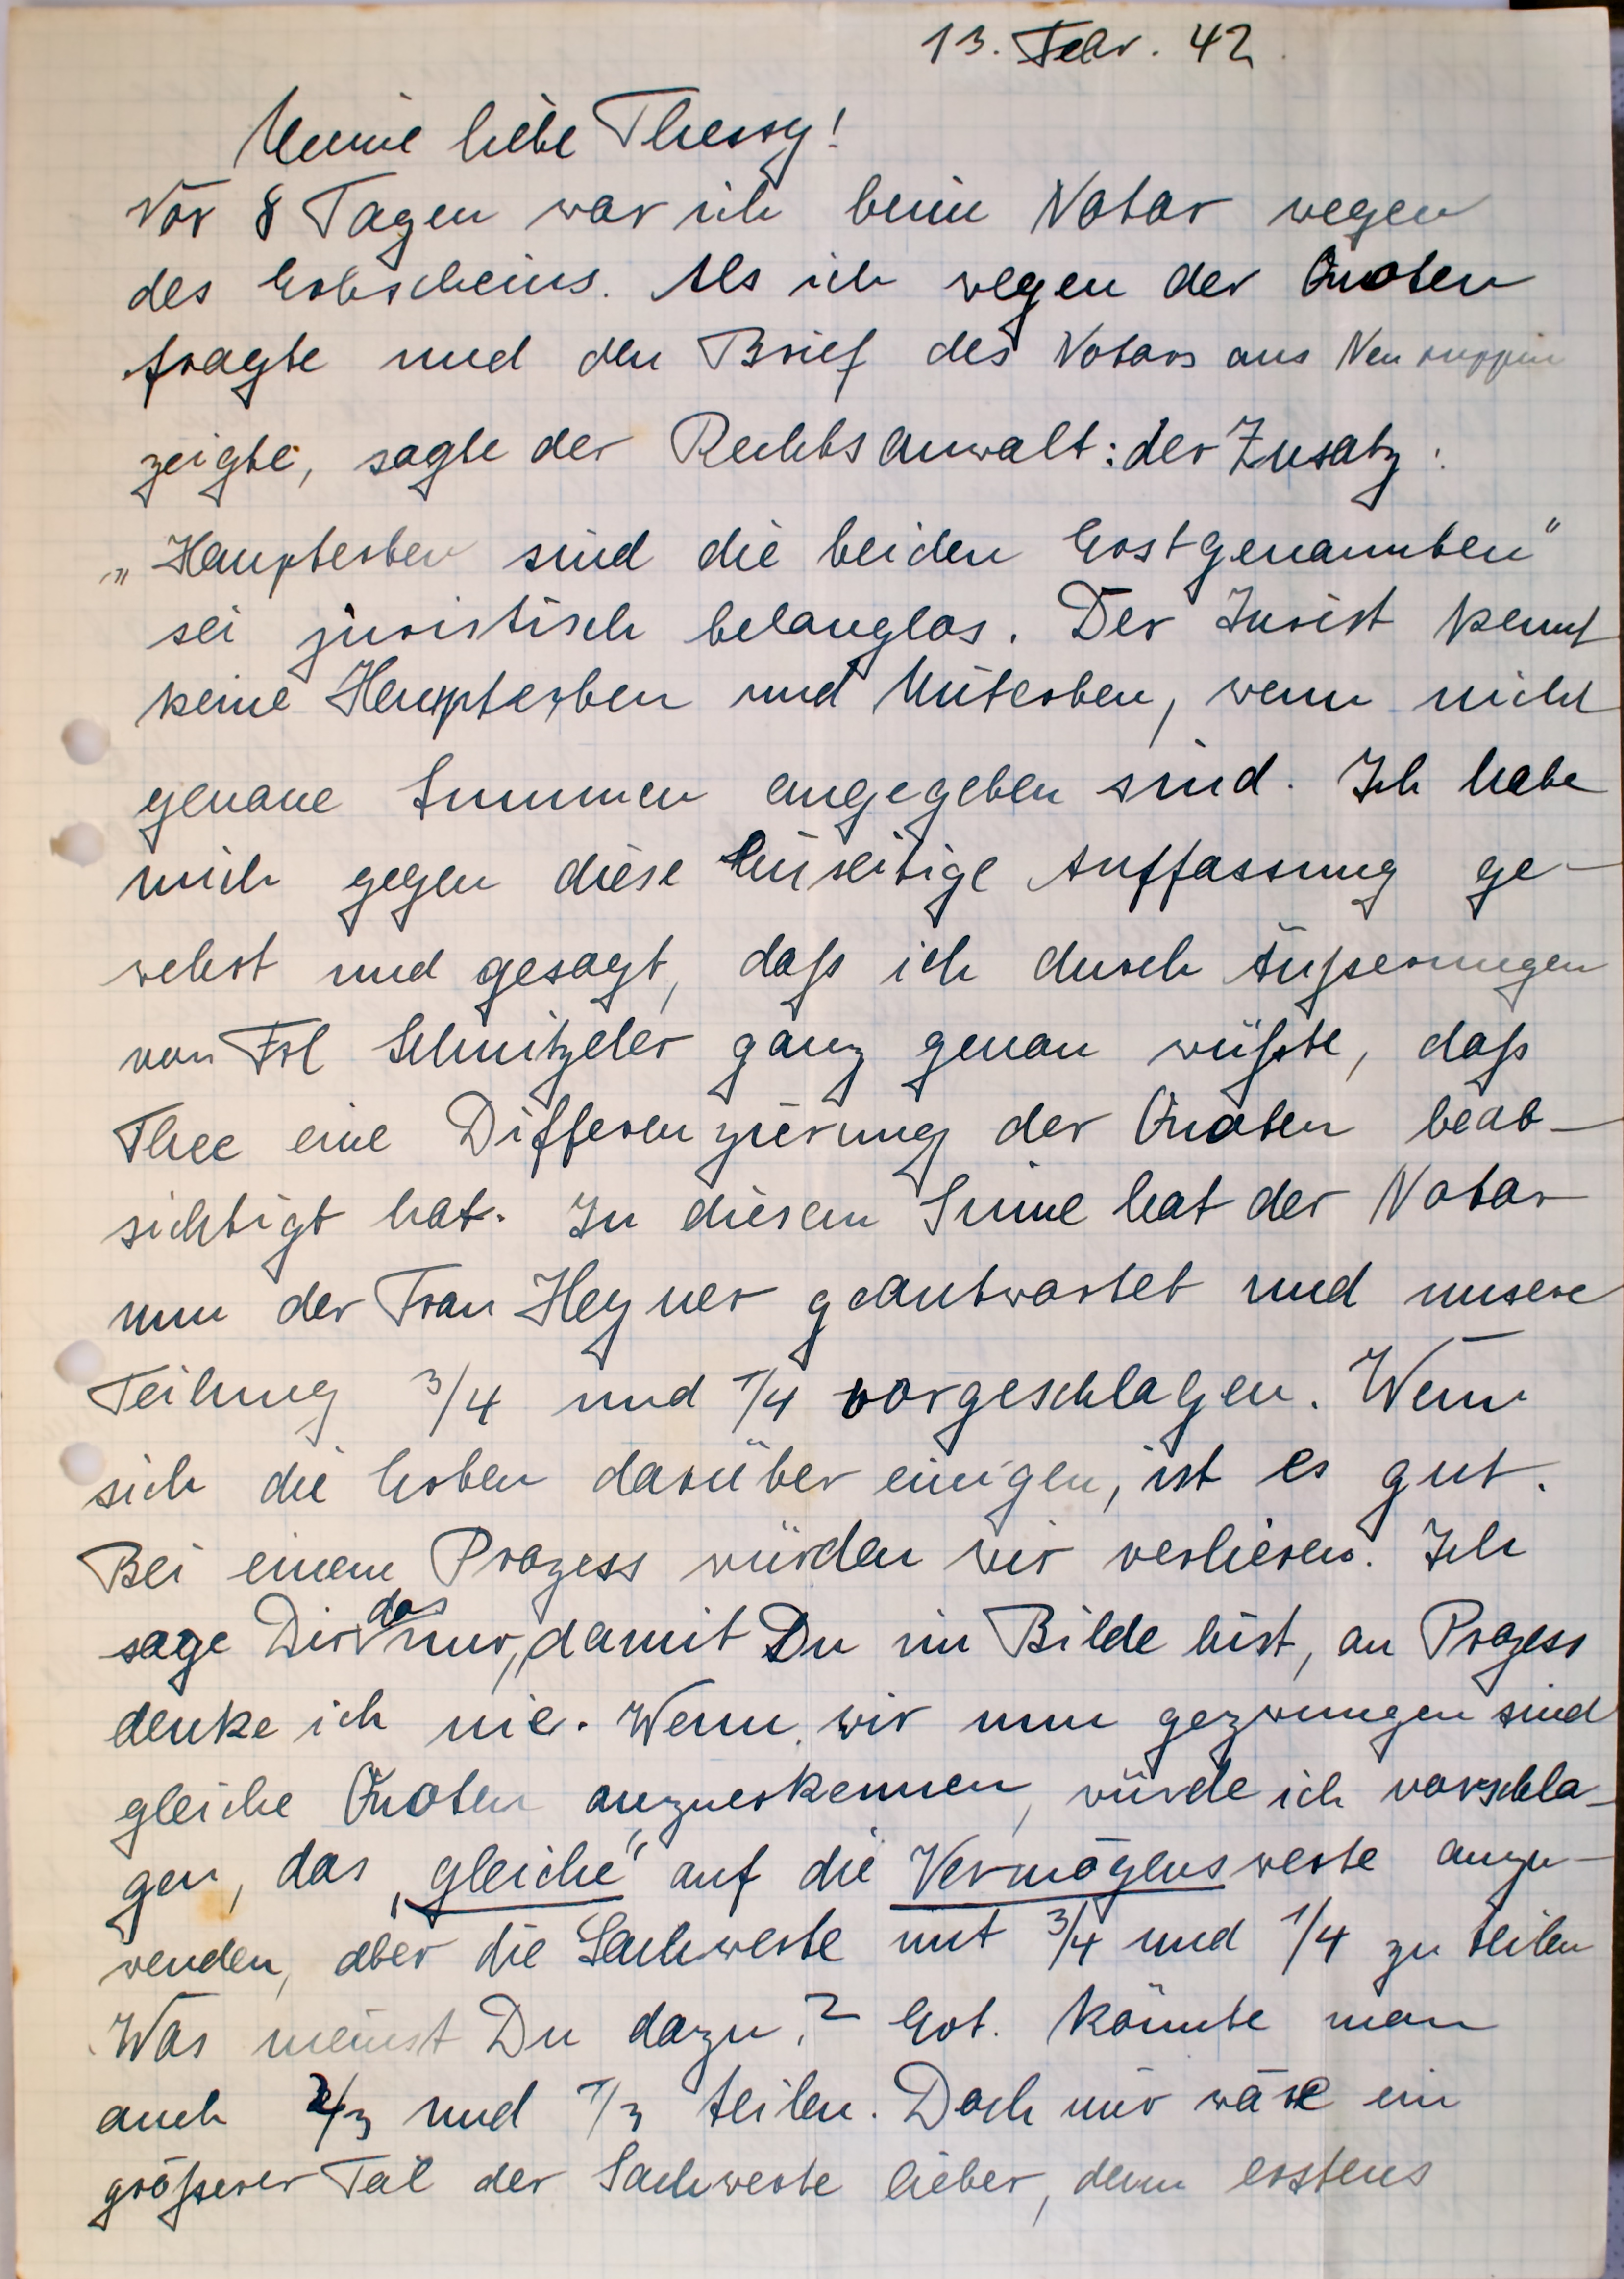 13. Febr. 42.
Meine liebe Thessy!
Vor 8 Tagen war ich beim Notar wegen
des Erbscheins. Als ich wegen der Quoten
fragte und den Brief des Notars aus Neuruppin
zeigte, sagte der Rechtsanwalt: der Zusatz:
„Haupterben sind die beiden Erstgenannten“
sei juristisch belanglos. Der Jurist kennt
keine Haupterben und Miterben, wenn nicht
genaue Summen angegeben sind. Ich habe
mich gegen diese einseitige Auffassung ge-
wehrt und gesagt, daß ich durch Äußerungen
von Frl Schnitzeler ganz genau wüßte, daß
Thee eine Differenzierung der Quoten beab-
sichtigt hat. In diesem Sinne hat der Notar
nun der Frau Heyner geantwortet und unsere
Teilung 3/4 und 1/4 vorgeschlagen. Wenn
sich die Erben darüber einigen, ist es gut.
Bei einem Prozess würden wir verlieren. Ich
sage Dir das nur, damit Du im Bilde bist, an Prozess
denke ich nie. Wenn wir nun gezwungen sind
gleiche Quoten anzuerkennen, würde ich vorschla-
gen, das „gleiche“ auf die Vermögenswerte anzu-
wenden, aber die Sachwerte mit 3/4 und 1/4 zu teilen
Was meinst Du dazu? Evt. könnte man
auch 2/3 und 1/3 teilen. Doch mir wäre ein
größerer Teil der Sachwerte lieber, denn erstens